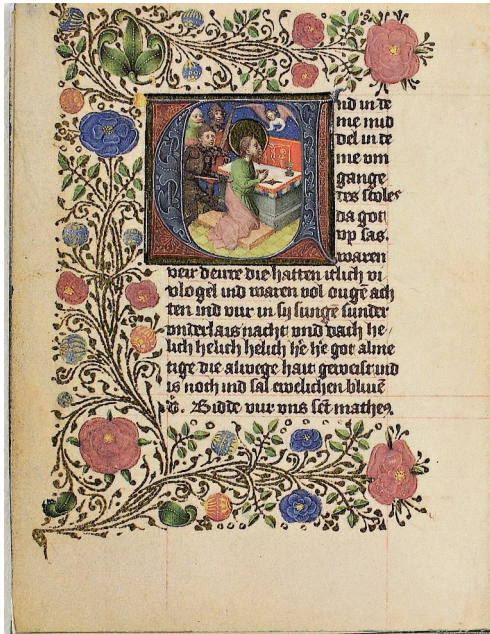 Und in de
me mid
del in de
me vm
gange
des stoles
da got
vp sas.
waren
veir deire die hatten itlich vi
vlogel ind waren vol ougē ach
ten ind vur in sy sunge sunder
vnderlais nacht vnd dach he
lich helich helich h'e h'e got alme
tige die alwege hait geweist ind
is noch ind sal ewelichen bliuē
Bidde vur vns sct matheꝯ